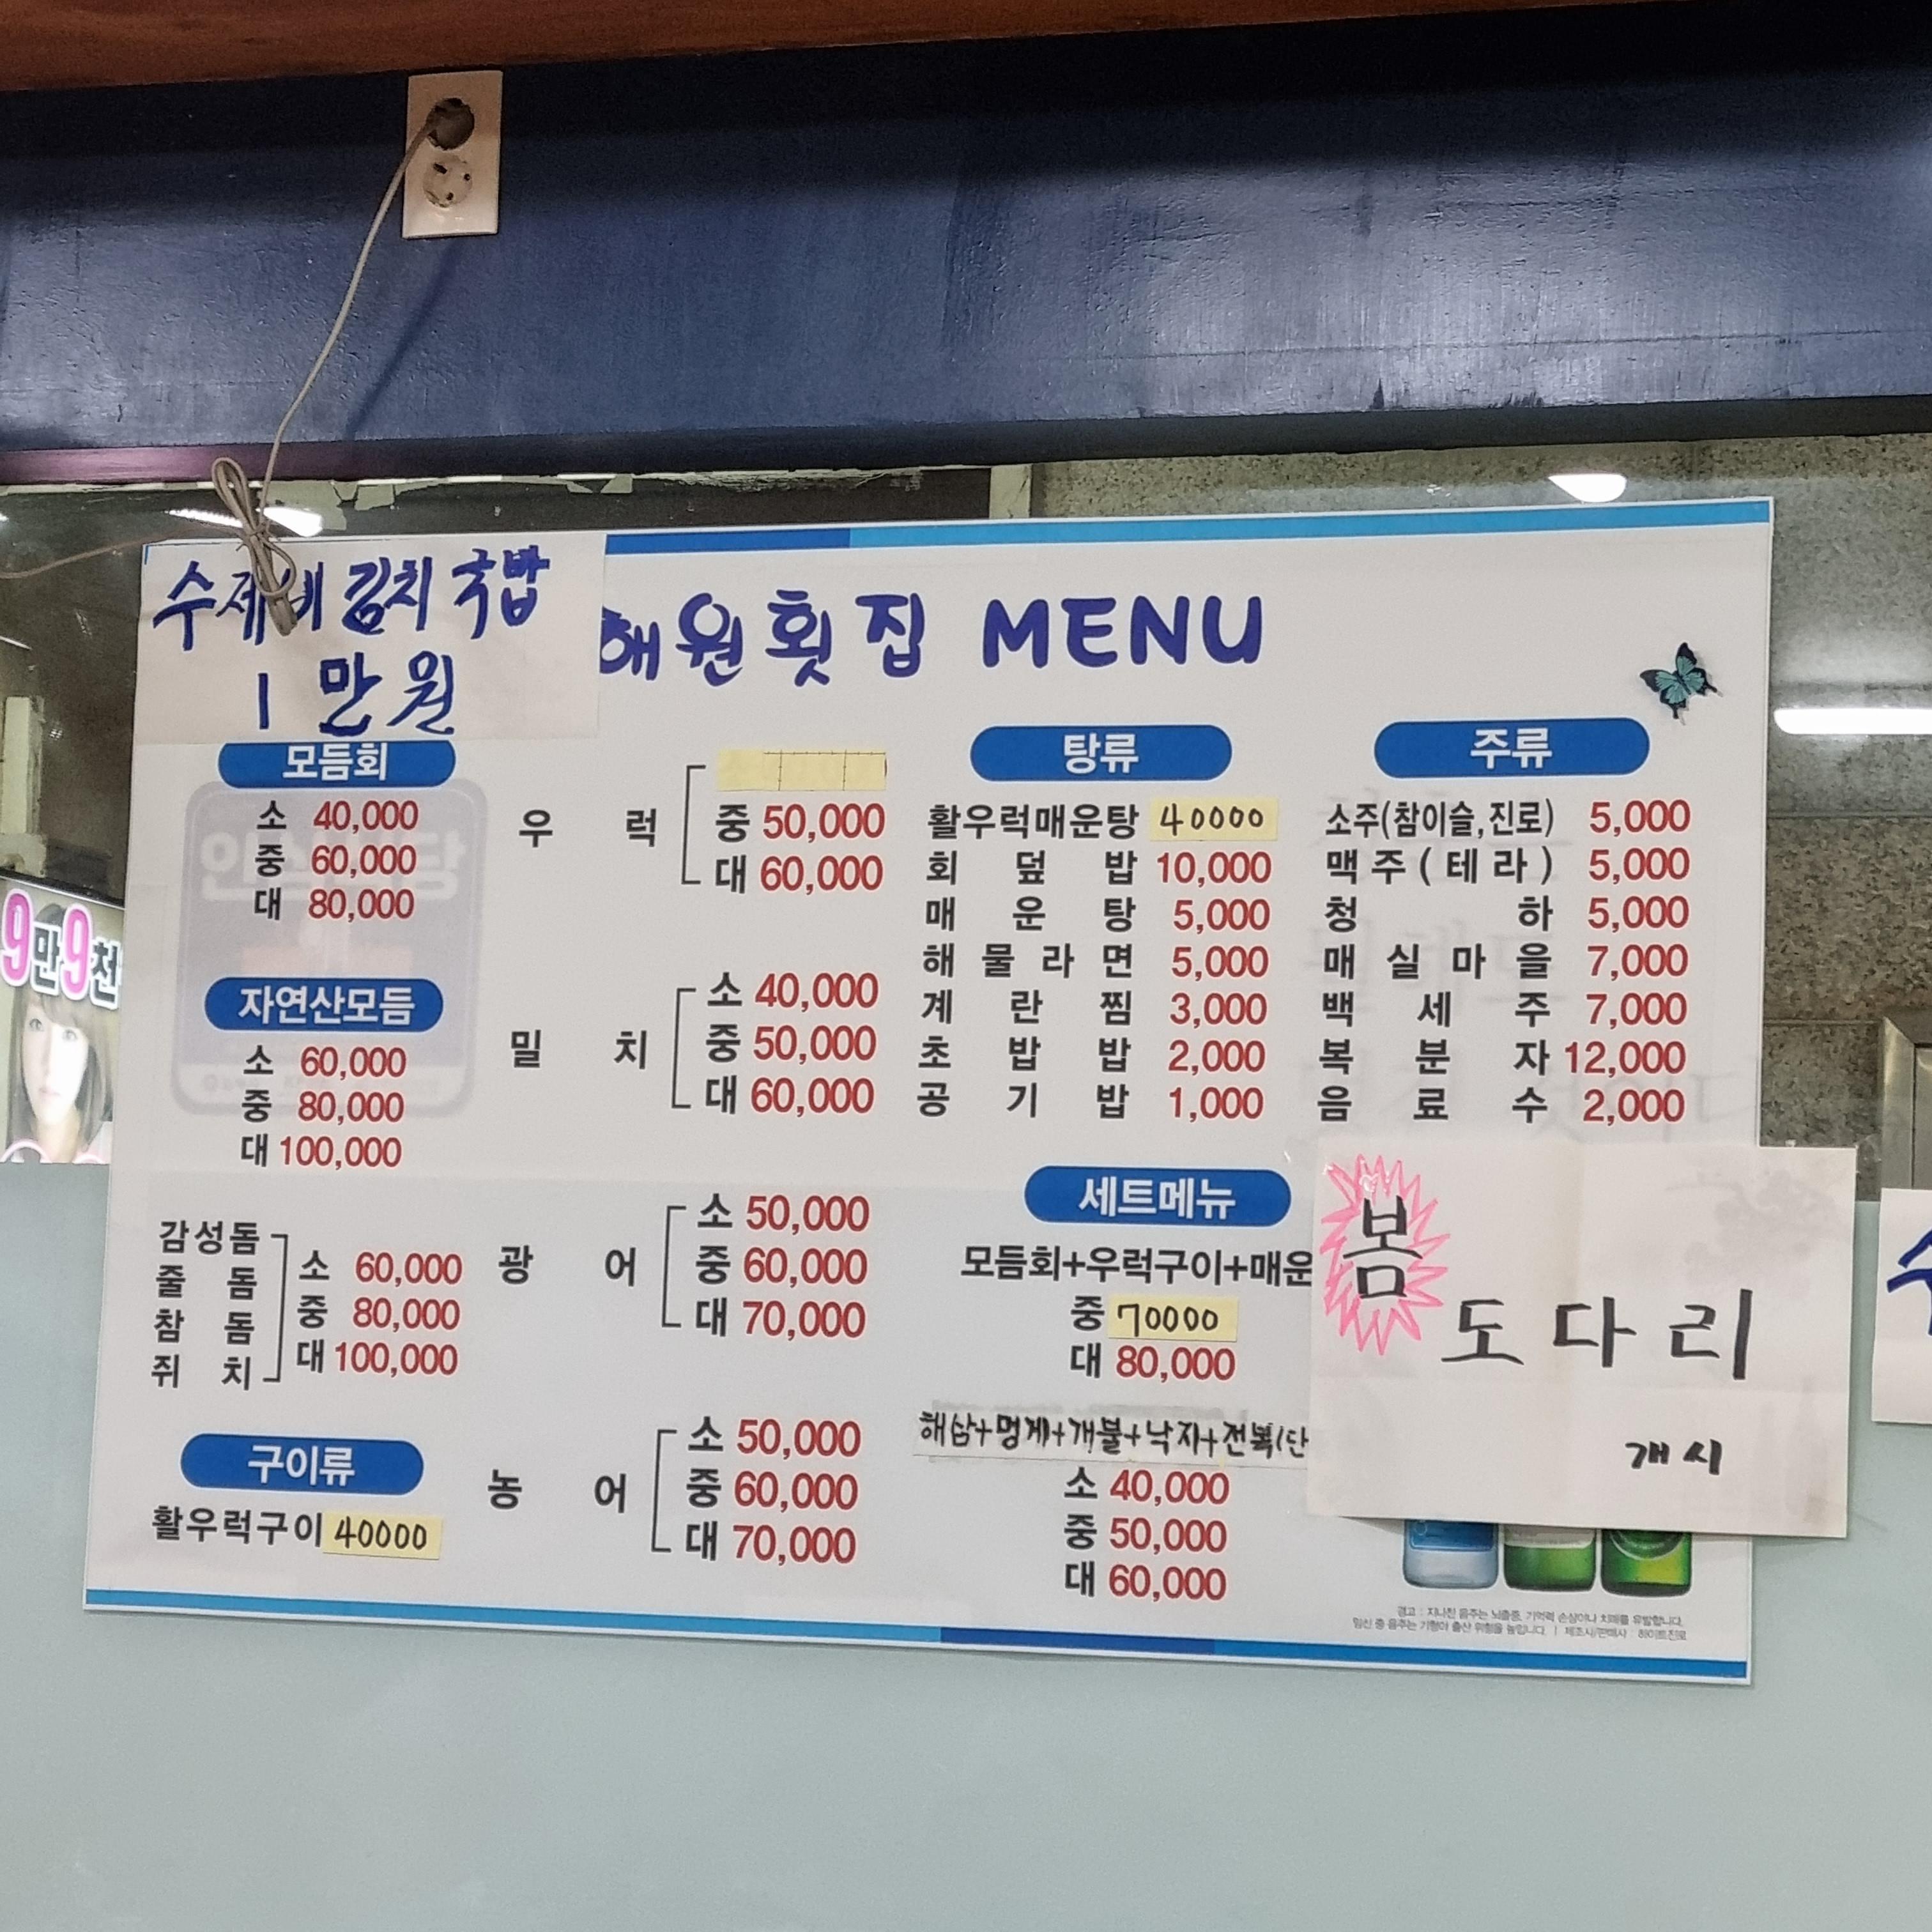 수제비 김치 국밥
1 만원
해원횟집 MENU
모듬회
소 40,000
중 60,000
대 80,000
자연산모듬
소 60,000
중 80,000
대 100,000
감성돔
줄돔
참돔
쥐치
소 60,000
중 80,000
대 100,000
구이류
활우럭구이 40000
우럭
중 50,000
대 60,000
밀치
소 40,000
중 50,000
대 60,000
광어
소 50,000
중 60,000
대 70,000
농어
소 50,000
중 60,000
대 70,000
탕류
활우럭매운탕 40000
회덮밥 10,000
매운탕 5,000
해물라면 5,000
계란찜 3,000
초밥밥 2,000
공기밥 1,000
세트메뉴
모듬회+우럭구이+매운
중 70000
대 80,000
해삼+멍게+개불+낙지+전복(단
소 40,000
중 50,000
대 60,000
주류
소주(참이슬,진로) 5,000
맥주(테라) 5,000
청하 5,000
매실마을 7,000
백세주 7,000
복분자 12,000
음료수 2,000
봄
도다리
개시
경고 : 지나친 음주는 뇌졸중, 기억력 손상이나 치매를 유발합니다.
임신 중 음주는 기형아 출산 위험을 높입니다. | 제조사/판매사 : 하이트진로
9만9천